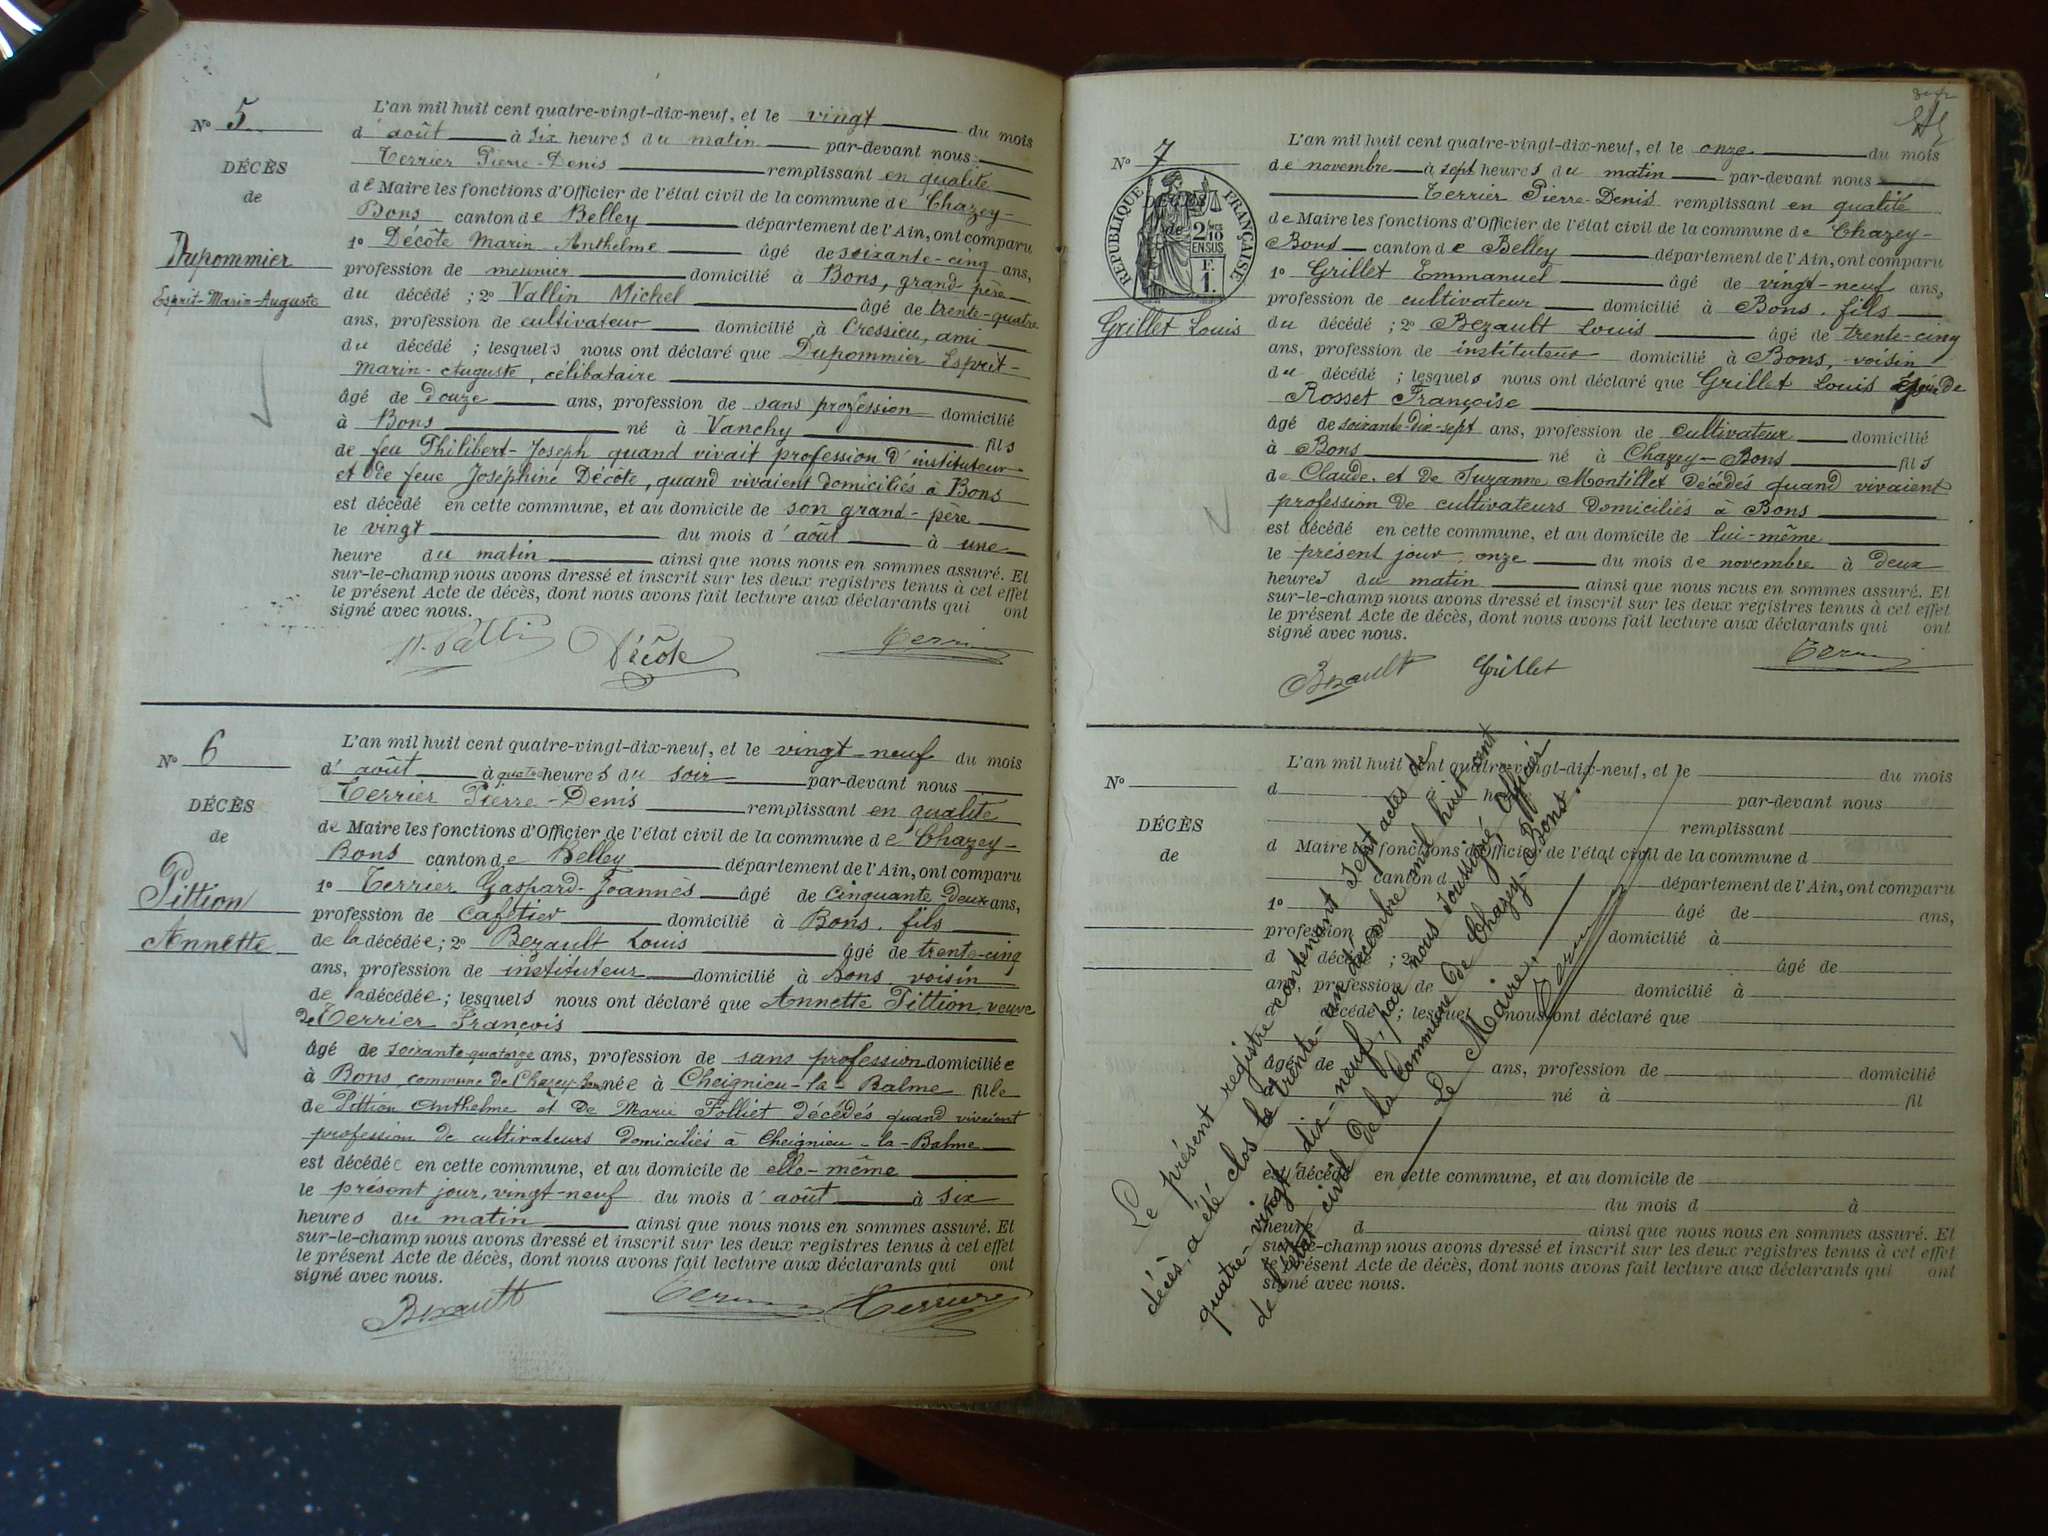 N° 5
DÉCÈS
de
Dupommier
Esprit-Marin-Auguste
L'an mil huit cent quatre-vingt-dix-neuf, et le vingt du mois
d'août à six heures du matin par-devant nous
Terrier Pierre-Denis remplissant en qualité
de Maire les fonctions d'Officier de l'état civil de la commune de Chazey-
Bons canton de Belley département de l'Ain, ont comparu
1° Décôte Marin-Anthelme âgé de soixante-cinq ans,
profession de meunier domicilié à Bons, grand-père
du décédé ; 2° Vallin Michel âgé de trente-quatre
ans, profession de cultivateur domicilié à Cressieu, ami
du décédé ; lesquels nous ont déclaré que Dupommier Esprit-
Marin-Auguste, célibataire
âgé de douze ans, profession de sans profession domicilié
à Bons né à Vanchy fils
de feu Philibert-Joseph quand vivait profession d'instituteur
et de feue Joséphine Décôte, quand vivaient domiciliés à Bons
est décédé en cette commune, et au domicile de son grand-père
le vingt du mois d'août à une
heure du matin ainsi que nous nous en sommes assuré. Et
sur-le-champ nous avons dressé et inscrit sur les deux registres tenus à cet effet
le présent Acte de décès, dont nous avons fait lecture aux déclarants qui ont
signé avec nous.
M. Vallin Décôte Terrier
N° 6
DÉCÈS
de
Pittion
Annette
L'an mil huit cent quatre-vingt-dix-neuf, et le vingt-neuf du mois
d'août à quatre heures du soir par-devant nous
Terrier Pierre-Denis remplissant en qualité
de Maire les fonctions d'Officier de l'état civil de la commune de Chazey-
Bons canton de Belley département de l'Ain, ont comparu
1° Terrier Gaspard-Joannès âgé de cinquante deux ans,
profession de cafetier domicilié à Bons, fils
de la décédée ; 2° Bezault Louis âgé de trente-cinq
ans, profession de instituteur domicilié à Bons voisin
de la décédée ; lesquels nous ont déclaré que Annette Pittion veuve
de Terrier François
âgé de soixante-quatorze ans, profession de sans profession domiciliée
à Bons, commune de Chazey-Bons née à Cheignieu-la-Balme fille
de Pittion Anthelme et de Marie Folliet décédés quand vivaient
profession de cultivateurs domiciliés à Cheignieu-la-Balme
est décédée en cette commune, et au domicile de elle-même
le présent jour, vingt-neuf du mois d'août à six
heures du matin ainsi que nous nous en sommes assuré. Et
sur-le-champ nous avons dressé et inscrit sur les deux registres tenus à cet effet
le présent Acte de décès, dont nous avons fait lecture aux déclarants qui ont
signé avec nous.
Bezault Terrier Terrier
N° 7
RÉPUBLIQUE FRANÇAISE
DÉCÈS
de
2 10 MES
EN SUS
F.
1.
Grillet Louis
L'an mil huit cent quatre-vingt-dix-neuf, et le onze du mois
de novembre à sept heures du matin par-devant nous
Terrier Pierre-Denis remplissant en qualité
de Maire les fonctions d'Officier de l'état civil de la commune de Chazey-
Bons canton de Belley département de l'Ain, ont comparu
1° Grillet Emmanuel âgé de vingt-neuf ans,
profession de cultivateur domicilié à Bons, fils
du décédé ; 2° Bezault Louis âgé de trente-cinq
ans, profession de instituteur domicilié à Bons, voisin
du décédé ; lesquels nous ont déclaré que Grillet Louis époux de
Rosset Françoise
âgé de soixante-dix-sept ans, profession de cultivateur domicilié
à Bons né à Chazey-Bons fils
de Claude, et de Suzanne Montillet décédés quand vivaient
profession de cultivateurs domiciliés à Bons
est décédé en cette commune, et au domicile de lui-même
le présent jour, onze du mois de novembre à deux
heures du matin ainsi que nous nous en sommes assuré. Et
sur-le-champ nous avons dressé et inscrit sur les deux registres tenus à cet effet
le présent Acte de décès, dont nous avons fait lecture aux déclarants qui ont
signé avec nous.
Bezault Grillet Terrier
N°
DÉCÈS
de
L'an mil huit cent quatre-vingt-dix-neuf, et le du mois
d à heure par-devant nous
remplissant
d Maire les fonctions d'Officier de l'état civil de la commune d
canton d département de l'Ain, ont comparu
1° âgé de ans,
profession d domicilié à
d décédé ; 2° âgé de
ans, profession de domicilié à
d décédé ; lesquel nous ont déclaré que
âgé de ans, profession de domicilié
à né à fil
est décédé en cette commune, et au domicile de
le du mois d à
heure d ainsi que nous nous en sommes assuré. Et
sur-le-champ nous avons dressé et inscrit sur les deux registres tenus à cet effet
le présent Acte de décès, dont nous avons fait lecture aux déclarants qui ont
signé avec nous.
Le présent registre contenant sept actes de
décès, a été clos le trente-un décembre mil huit cent
quatre-vingt-dix-neuf, par nous soussigné Officier
de l'état civil de la commune de Chazey-Bons.
Le Maire,
Terrier